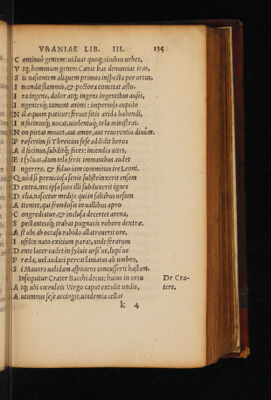 VRANIAE LIB. III. 135
C ominuò gentem: uiduat quoq; ciuibus urbes,
V tq; hominum generi Canis has denuntiat iras,
S ic nascentem aliquem primos inspecta per ortus,
I ncendit flammis, & pectora concitat æstu.
I ra ingens, dolor atq; ingens ingentibus ausis,
I ngentesq; tument animi: imperiosa cupido
N il æquum patitur: feruet sitis arida habendi,
I nsinuatq; uocat, uiolentaq; tela ministrat.
N on pietas mouet, aut amor, aut reuerentia diuum.
P ræsertim si Thereicus sese addidit heros
A dscitus, subditq; faces: incendia uitet,
E t syluas, dum tela ferit immanibus audet
I ngerere, & fidus iam comminus ire Leoni.
Q uòd si perniciosa senis substrinxerit ensem
D extra, nec ipsa suos illi subduxerit ignes
D elia, nascetur mediæ quem saltibus ursum
A ttentet, qui frendosis in uallibus apro
C ongrediatur, & inclusa decertet arena,
S pectantesq; trahat pugnacis robore dextræ.
A st ubi ab occasu rabido allatrauerit ore,
I nfelix nato exitium parat, unde ferarum
D ente lacer cadet in syluis ursi'ue, lupi'ue
P ræda, uel audaci percutsd aniatus ab umbro,
S i Mauors ualidam aspiciens concusserit hastam.
Insequitur Crater Bacchi decus: huius in ortu
A tq; ubi cæruleis Virgo caput extulit undis,
A utumnus sese accingit, uindemia cellas
De Cra-
tere.
k 4